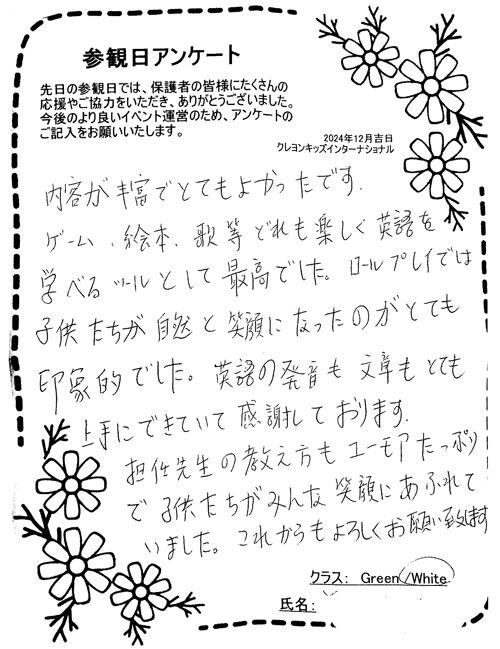 参観日アンケート
先日の参観日では、保護者の皆様にたくさんの
応援やご協力をいただき、ありがとうございました。
今後のより良いイベント運営のため、アンケートの
ご記入をお願いいたします。
2024年12月吉日
クレヨンキッズインターナショナル
内容が豊富でとてもよかったです.
ゲーム、絵本、歌等どれも楽しく英語を
学べるツールとして最高でした。ロールプレイでは
子供たちが自然と笑顔になったのがとても
印象的でした。英語の発音も文章もとても
上手にできていて感謝しております.
担任先生の教え方もユーモアたっぷり
で子供たちがみんな笑顔にあふれて
いました。これからもよろしくお願い致します
クラス: Green/White
氏名: